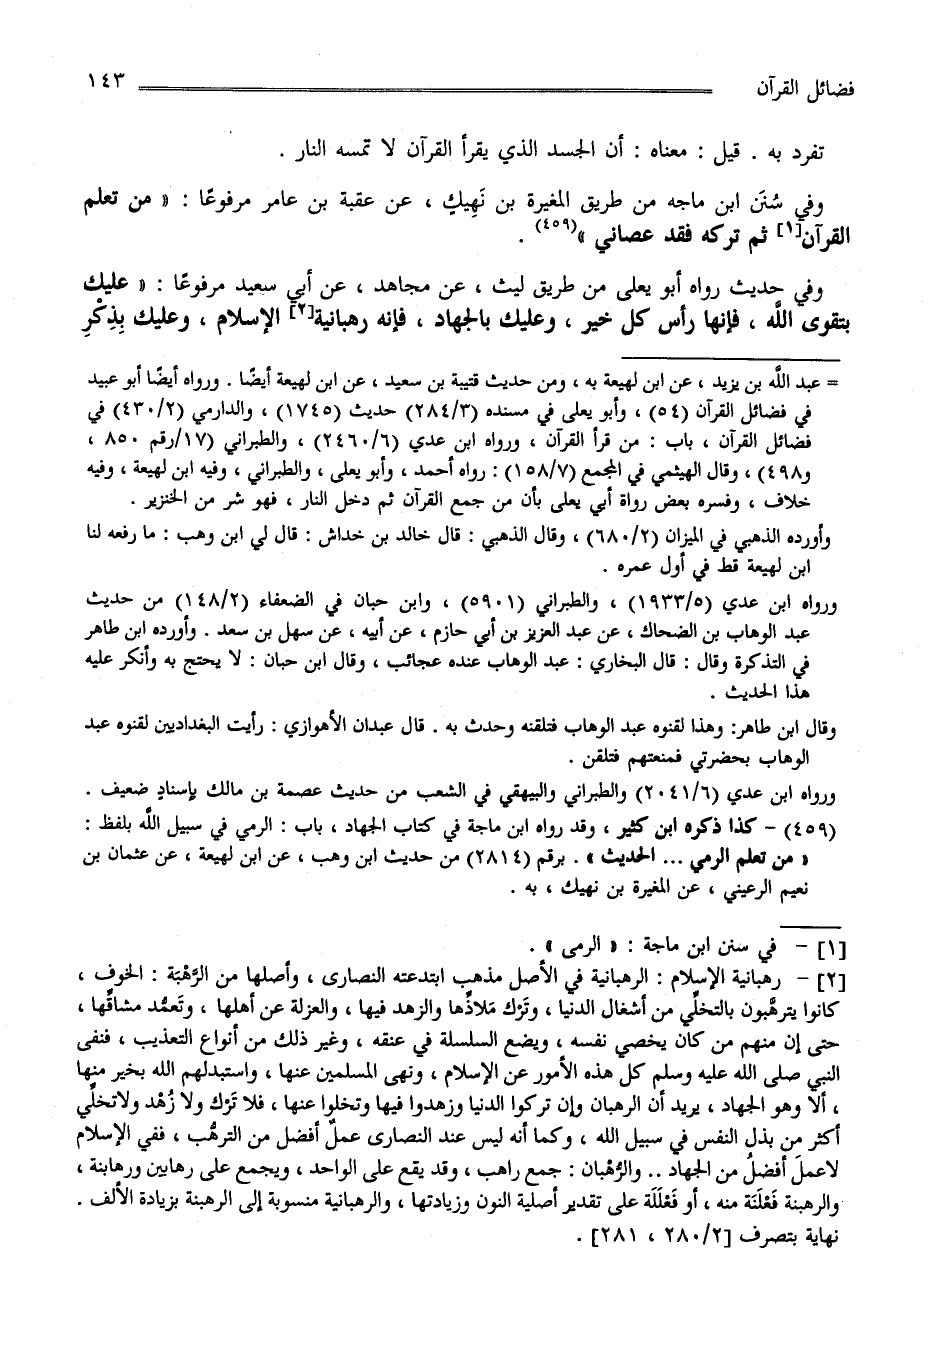 فضائل القرآن ١٤٣
تفرد به . قيل : معناه : أن الجسد الذي يقرأ القرآن لا تمسه النار .
وفي سُنَن ابن ماجه من طريق المغيرة بن نَهِيكٍ ، عن عقبة بن عامر مرفوعًا : « من تعلم
القرآن[١] ثم تركه فقد عصاني »(٤٥٩) .
وفي حديث رواه أبو يعلى من طريق ليث ، عن مجاهد ، عن أبي سعيد مرفوعًا : « عليك
بتقوى اللَّه ، فإنها رأس كل خير ، وعليك بالجهاد ، فإنه رهبانية[٢] الإسلام ، وعليك بِذِكْرِ
= عبد اللَّه بن يزيد ، عن ابن لهيعة به ، ومن حديث قتيبة بن سعيد ، عن ابن لهيعة أيضًا . ورواه أيضًا أبو عبيد
في فضائل القرآن (٥٤) ، وأبو يعلى في مسنده (٢٨٤/٣) حديث (١٧٤٥) ، والدارمي (٤٣٠/٢) في
فضائل القرآن ، باب : من قرأ القرآن ، ورواه ابن عدي (٢٤٦٠/٦) ، والطبراني (١٧/رقم ٨٥٠ ،
و٤٩٨) ، وقال الهيثمي في المجمع (١٥٨/٧) : رواه أحمد ، وأبو يعلى ، والطبراني ، وفيه ابن لهيعة ، وفيه
خلاف ، وفسره بعض رواة أبي يعلى بأن من جمع القرآن ثم دخل النار ، فهو شر من الخنزير .
وأورده الذهبي في الميزان (٦٨٠/٢) ، وقال الذهبي : قال خالد بن خداش : قال لي ابن وهب : ما رفعه لنا
ابن لهيعة قط في أول عمره .
ورواه ابن عدي (١٩٣٣/٥) ، والطبراني (٥٩٠١) ، وابن حبان في الضعفاء (١٤٨/٢) من حديث
عبد الوهاب بن الضحاك ، عن عبد العزيز بن أبي حازم ، عن أبيه ، عن سهل بن سعد . وأورده ابن طاهر
في التذكرة وقال : قال البخاري : عبد الوهاب عنده عجائب ، وقال ابن حبان : لا يحتج به وأنكر عليه
هذا الحديث .
وقال ابن طاهر: وهذا لقنوه عبد الوهاب فتلقنه وحدث به . قال عبدان الأهوازي : رأيت البغداديين لقنوه عبد
الوهاب بحضرتي فمنعتهم فتلقن .
ورواه ابن عدي (٢٠٤١/٦) والطبراني والبيهقي في الشعب من حديث عصمة بن مالك بإسنادٍ ضعيف .
(٤٥٩) - كذا ذكره ابن كثير ، وقد رواه ابن ماجة في كتاب الجهاد ، باب : الرمي في سبيل اللَّه بلفظ :
« من تعلم الرمي ... الحديث » . برقم (٢٨١٤) من حديث ابن وهب ، عن ابن لهيعة ، عن عثمان بن
نعيم الرعيني ، عن المغيرة بن نهيك ، به .
[١] - في سنن ابن ماجة : « الرمى » .
[٢] - رهبانية الإسلام : الرهبانية في الأصل مذهب ابتدعته النصارى ، وأصلها من الرَّهْبَة : الخوف ،
كانوا يترهَّبون بالتخلِّي من أشغال الدنيا ، وتَرْك مَلاذِّها والزهد فيها ، والعزلة عن أهلها ، وتَعمُّد مشاقِّها ،
حتى إن منهم من كان يخصي نفسه ، ويضع السلسلة في عنقه ، وغير ذلك من أنواع التعذيب ، فنفى
النبي صلى الله عليه وسلم كل هذه الأمور عن الإسلام ، ونهى المسلمين عنها ، واستبدلهم الله بخير منها
، ألا وهو الجهاد ، يريد أن الرهبان وإن تركوا الدنيا وزهدوا فيها وتخلوا عنها ، فلا تَرْك ولا زُهْد ولاتخلِّي
أكثر من بذل النفس في سبيل الله ، وكما أنه ليس عند النصارى عملٌ أفضل من الترهُّب ، ففي الإسلام
لاعملَ أفضلُ من الجهاد .. والرُّهْبان : جمع راهب ، وقد يقع على الواحد ، ويجمع على رهابين ورهابنة ،
والرهبنة فَعْلَنَة منه ، أو فَعْلَلَة على تقدير أصلية النون وزيادتها ، والرهبانية منسوبة إلى الرهبنة بزيادة الألف .
نهاية بتصرف [٢٨٠/٢ ، ٢٨١] .